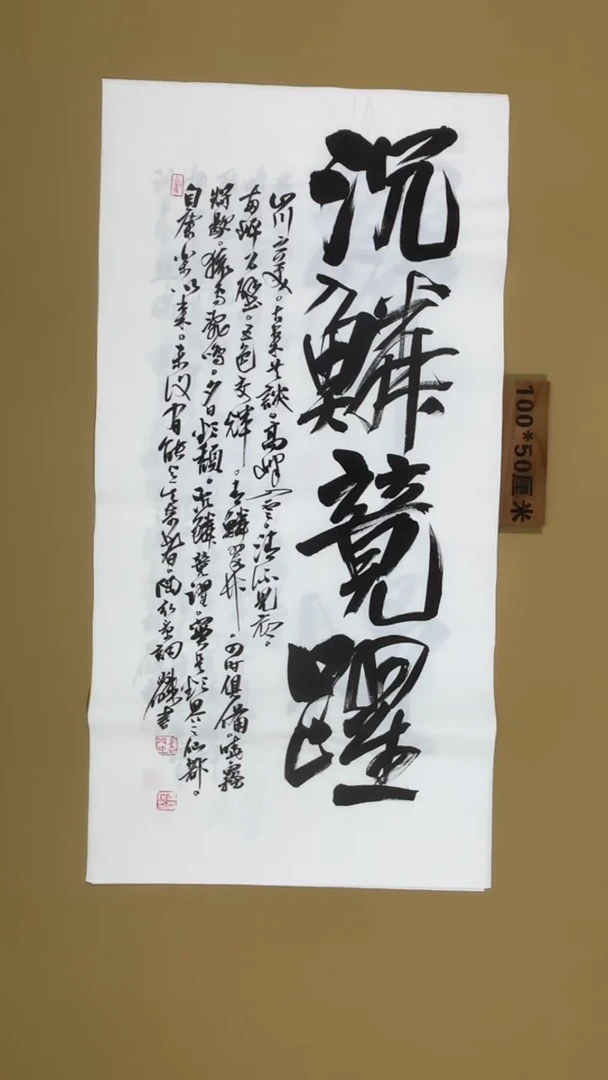 沉鱗竞躍
山川之美。古來共談。高峰入雲。清流見底。
兩岸石壁。五色交輝。青鱗翠竹。四时俱備。曉霧
將歇。猿鸟亂鸣。夕日欲頹。沉鱗競躍。實是欲界之仙都。
自康樂以来。未復有能与其奇者。陶弘景詞 書
100*50厘米